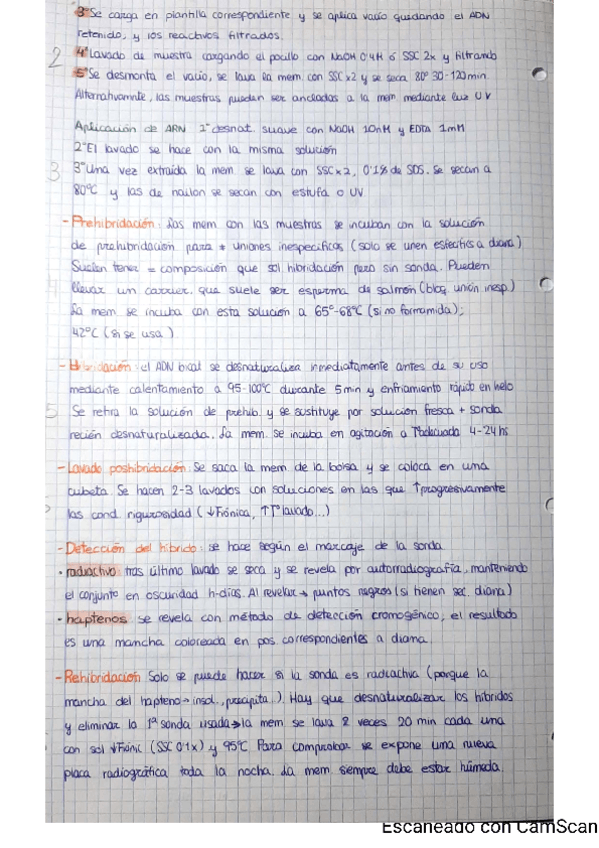 3º Se carga en plantilla correspondiente y se aplica vacío quedando el ADN
retenido, y los reactivos filtrados.
2 4º Lavado de muestra cargando el pocillo con NaOH 0'4M ó SSC 2x y filtrando
5º Se desmonta el vacío, se lava la mem con SSCx2 y se seca 80º 30-120min.
Alternativamnte, las muestras pueden ser ancladas a la mem mediante luz U.V
Aplicación de ARN 1º desnat. suave con NaOH 10nM y EDTA 1mM
2º El lavado se hace con la misma solución
3 3º Una vez extraída la mem se lava con SSCx2, 0'1% de SDS. Se secan a
80ºC y las de nailon se secan con estufa o UV
- Prehibridación: Las mem con las muestras se incuban con la solución
de prehibridación para ≠ uniones inespecíficas (solo se unen específicas a diana)
Suelen tener = composición que sol. hibridación pero sin sonda. Pueden
llevar un carrier que suele ser esperma de salmón (bloq unión inesp.)
La mem se incuba con esta solución a 65º-68ºC (si no formamida);
42ºC (si se usa)
- Hibridación: el ADN bicat se desnaturaliza inmediatamente antes de su uso
mediante calentamiento a 95-100ºC durante 5min y enfriamiento rápido en hielo
5 Se retira la solución de prehib. y se sustituye por solución fresca + sonda
recién desnaturalizada. La mem se incuba en agitación a Tªadecuada 4-24hs
- Lavado poshibridación: Se saca la mem de la bolsa y se coloca en una
cubeta. Se hacen 2-3 lavados con soluciones en las que ↑progresivamente
las cond. rigurosidad (↓Fiónica, ↑Tªlavado...)
- Detección del híbrido: se hace según el marcaje de la sonda
· radiactivo: tras último lavado se seca y se revela por autorradiografía, manteniendo
el conjunto en oscuridad h-días. Al revelar → puntos negros (si tienen sec. diana)
· haptenos: se revela con método de detección cromogénico, el resultado
es una mancha coloreada en pos. correspondientes a diana.
- Rehibridación: Solo se puede hacer si la sonda es radiactiva (porque la
mancha del hapteno → insol., precipita..) Hay que desnaturalizar los híbridos
y eliminar la 1ª sonda usada → la mem se lava 2 veces 20 min cada una
con sol ↓Fiónic (SSC 0'1x) y 95ºC. Para comprobar se expone una nueva
placa radiográfica toda la noche. La mem siempre debe estar húmeda.
Escaneado con CamScan